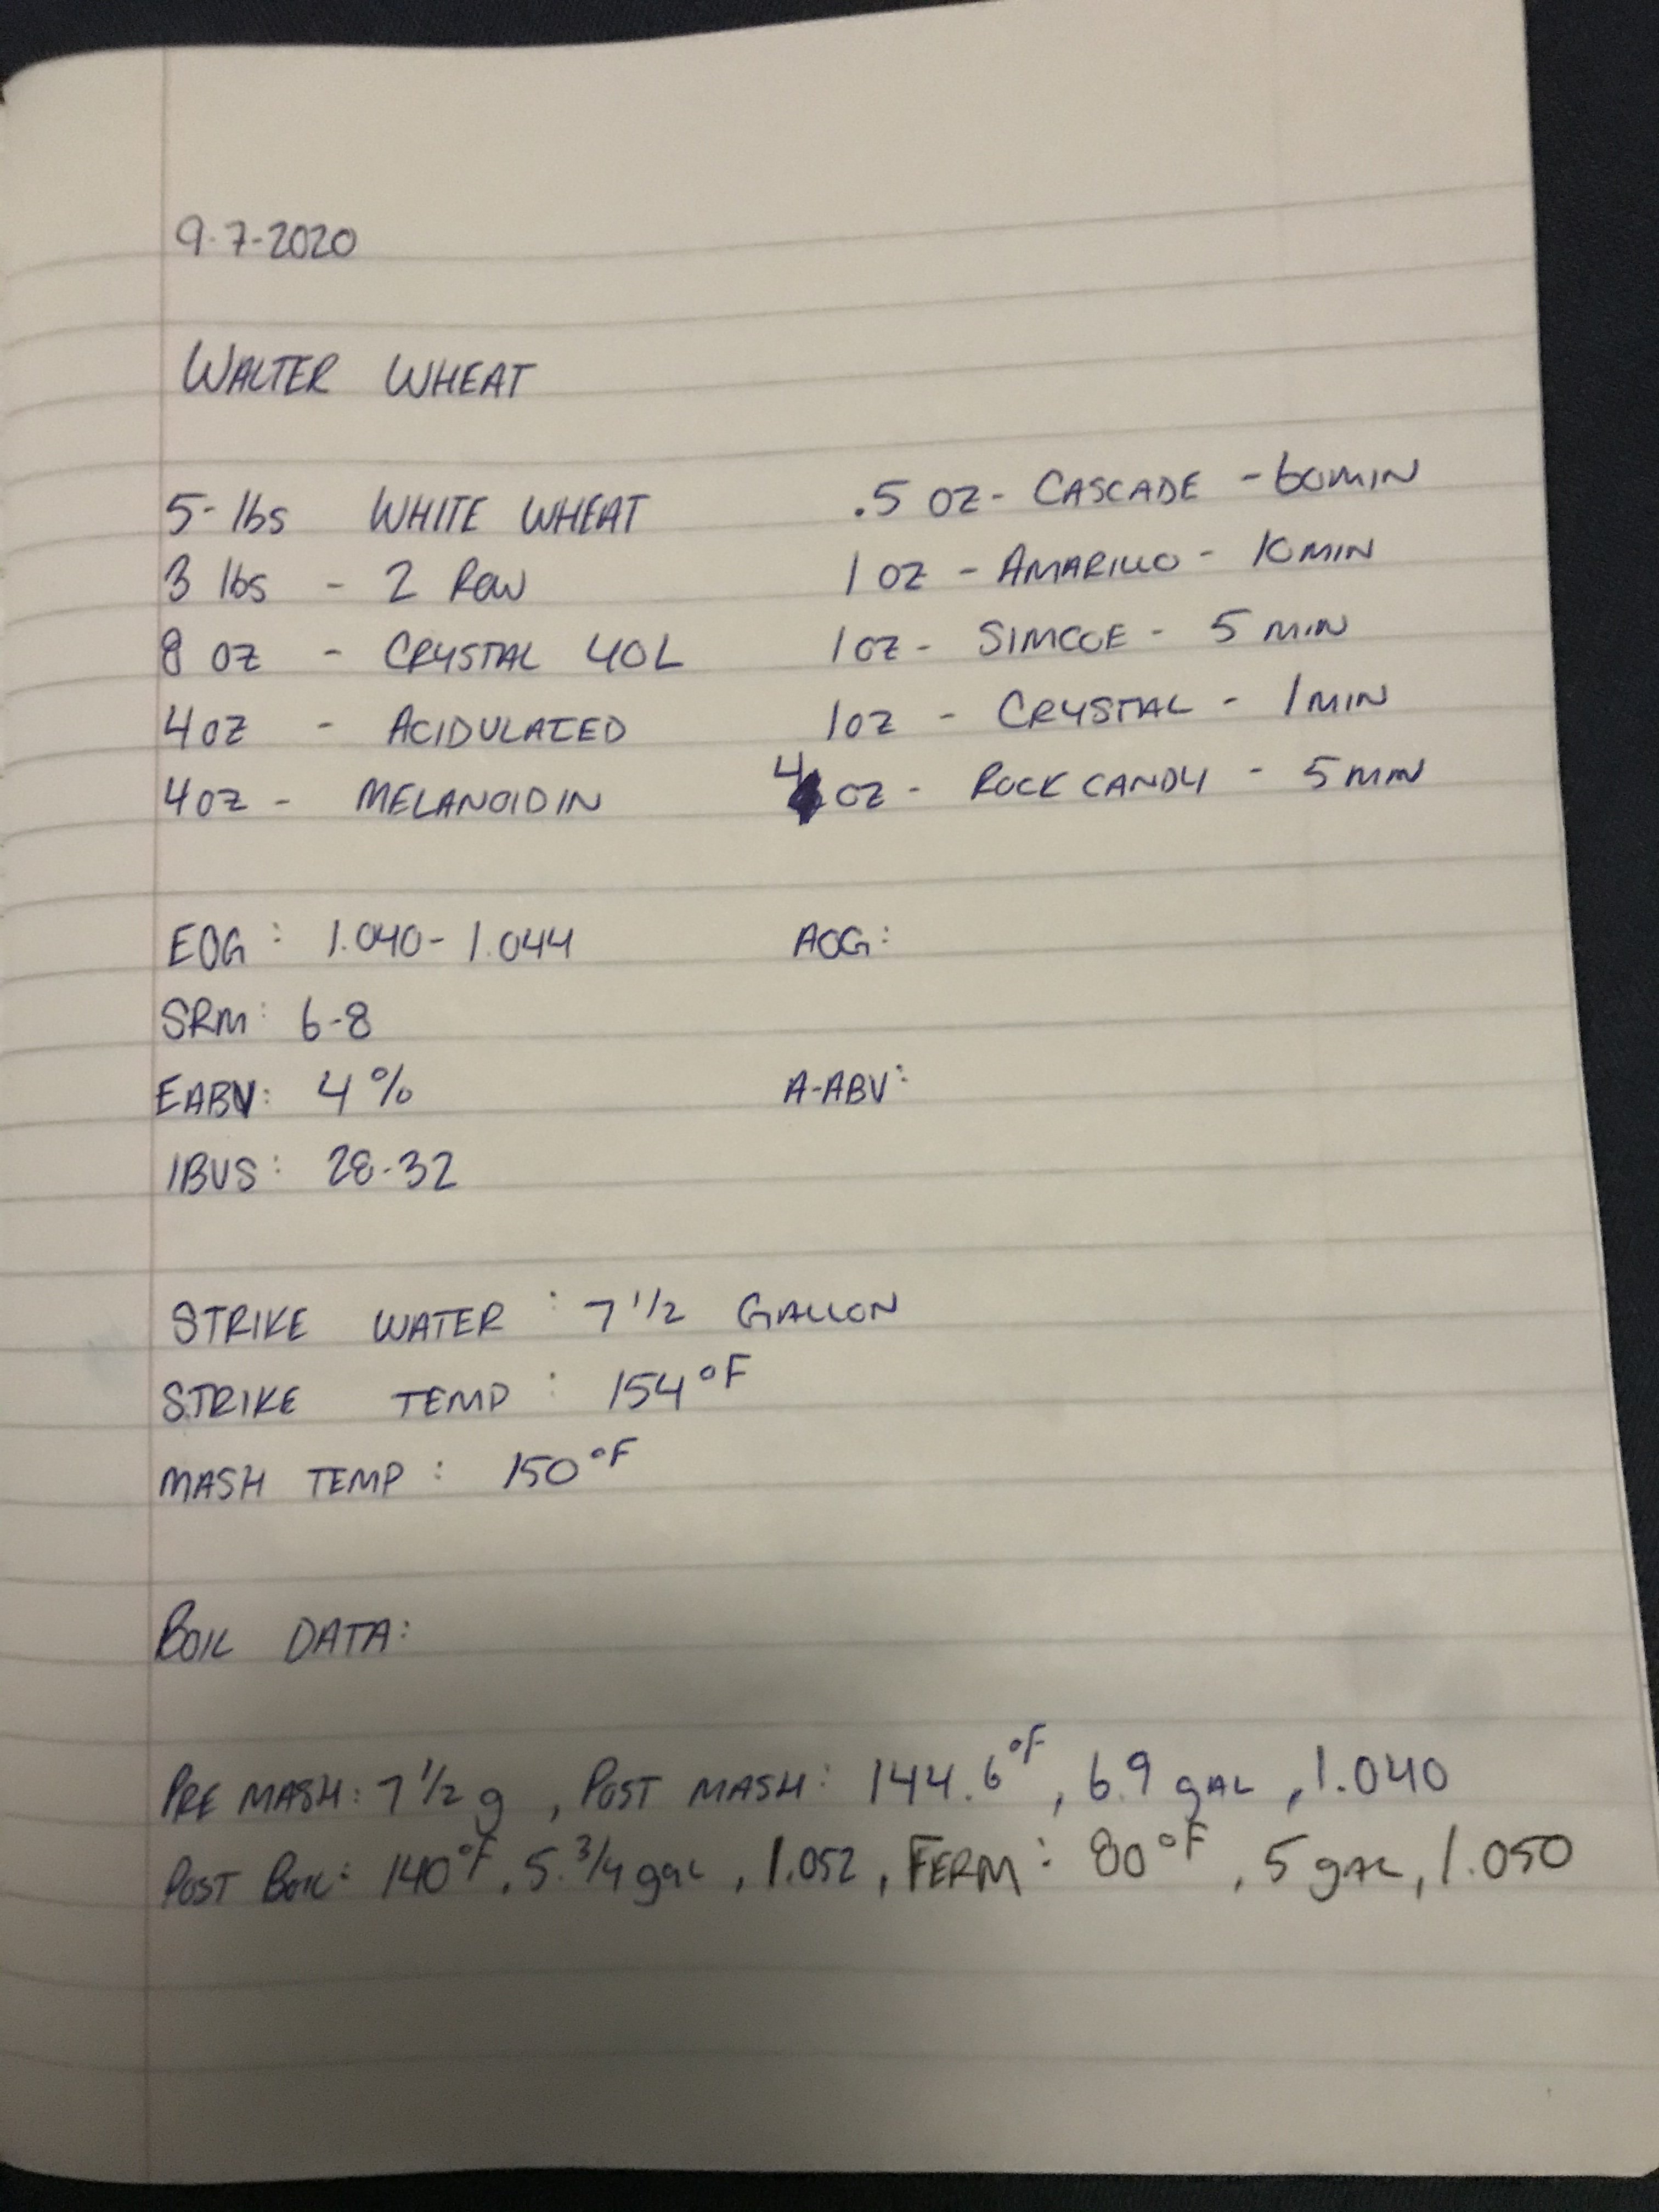 9-7-2020
WALTER WHEAT
5- lbs WHITE WHEAT
.5 OZ- CASCADE - 60MIN
3 lbs - 2 ROW
1 OZ - AMARILLO - 10MIN
8 OZ - CRYSTAL 40L
1 OZ - SIMCOE - 5 MIN
4 OZ - ACIDULATED
1 OZ - CRYSTAL - 1MIN
4 OZ - MELANOIDIN
4 OZ - ROCK CANDY - 5 MIN
EOG: 1.040-1.044 AOG:
SRM: 6-8
EABV: 4% A-ABV:
IBUS: 28-32
STRIKE WATER: 7 1/2 GALLON
STRIKE TEMP: 154°F
MASH TEMP: 150°F
BOIL DATA:
PRE MASH: 7 1/2 g, POST MASH: 144.6°F, 6.9 gAL, 1.040
POST BOIL: 140°F, 5.3/4 gal, 1.052, FERM: 80°F, 5 gAL, 1.050